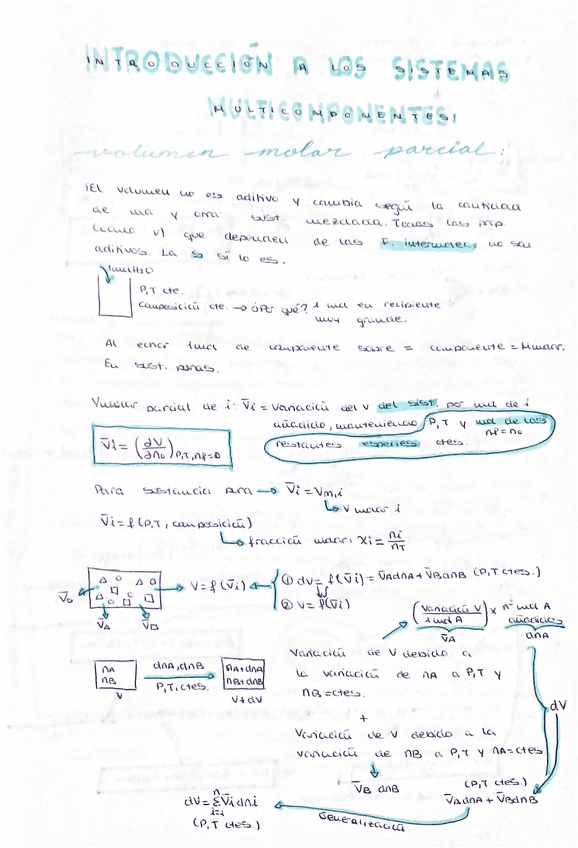 INTRODUCCIÓN A LOS SISTEMAS
MULTICOMPONENTES:
volumen molar parcial:
¡El volumen no es aditivo y cambia según la cantidad
de una y otra sust. mezclada. Todas las prop.
(como V) que dependen de las F. intermolec, no son
aditivos. La S sí lo es.
1mol H2O
P,T cte.
Composición cte. → ¿Por qué? 1 mol en recipiente
muy grande.
Al echar 1mol de componente sobre = componente = Vmolar.
En sust. puras.
Vmolar parcial de i: V̄i = Variación del V del sist. por mol de i
añadido, manteniendo P,T y mol de las
nj=no
restantes especies ctes.
V̄i = (∂V/∂no)P,T,nj=0
Para sustancia pura → V̄i = Vm,i
V molar i
V̄i = f(P,T, composición)
fracción molar: xi = ni/nT
V̄o
V̄Δ V̄□
V = f(V̄i)
① dV = f(V̄i) = V̄AdnA + V̄BdnB (P,T ctes.)
② V = f(V̄i)
(Variación V / 1 mol A) × nº mol A añadidos
V̄A dnA
nA
nB
V
dnA, dnB
P,T, ctes.
nA+dnA
nB+dnB
V+dV
Variación de V debido a
la variación de nA a P,T y
nB=ctes.
+
Variación de V debido a la
variación de nB a P,T y nA=ctes
V̄B dnB
dV
(P,T ctes.)
V̄AdnA + V̄BdnB
Generalización
dV = Σ V̄i dni
n
i=1
(P,T ctes.)